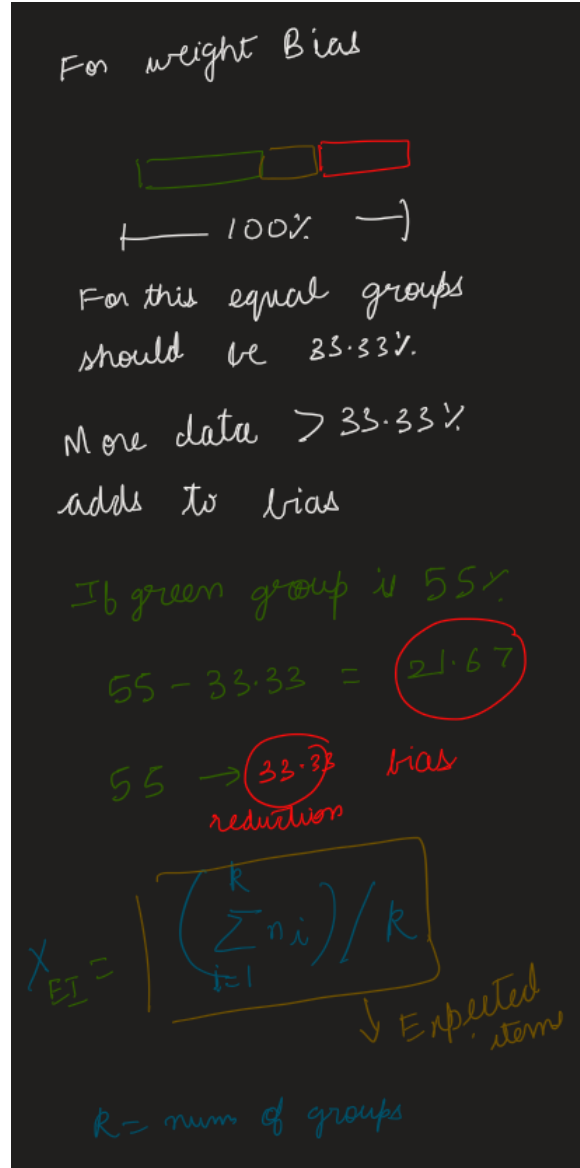 For weight Bias
100%
For this equal groups
should be 33.33%.
More data > 33.33%
adds to bias
If green group is 55%
55 - 33.33 = 21.67
55 → 33.33 bias
reduction
X_EI = (∑_{i=1}^{k} n_i) / k
Expected
item
k = nums of groups